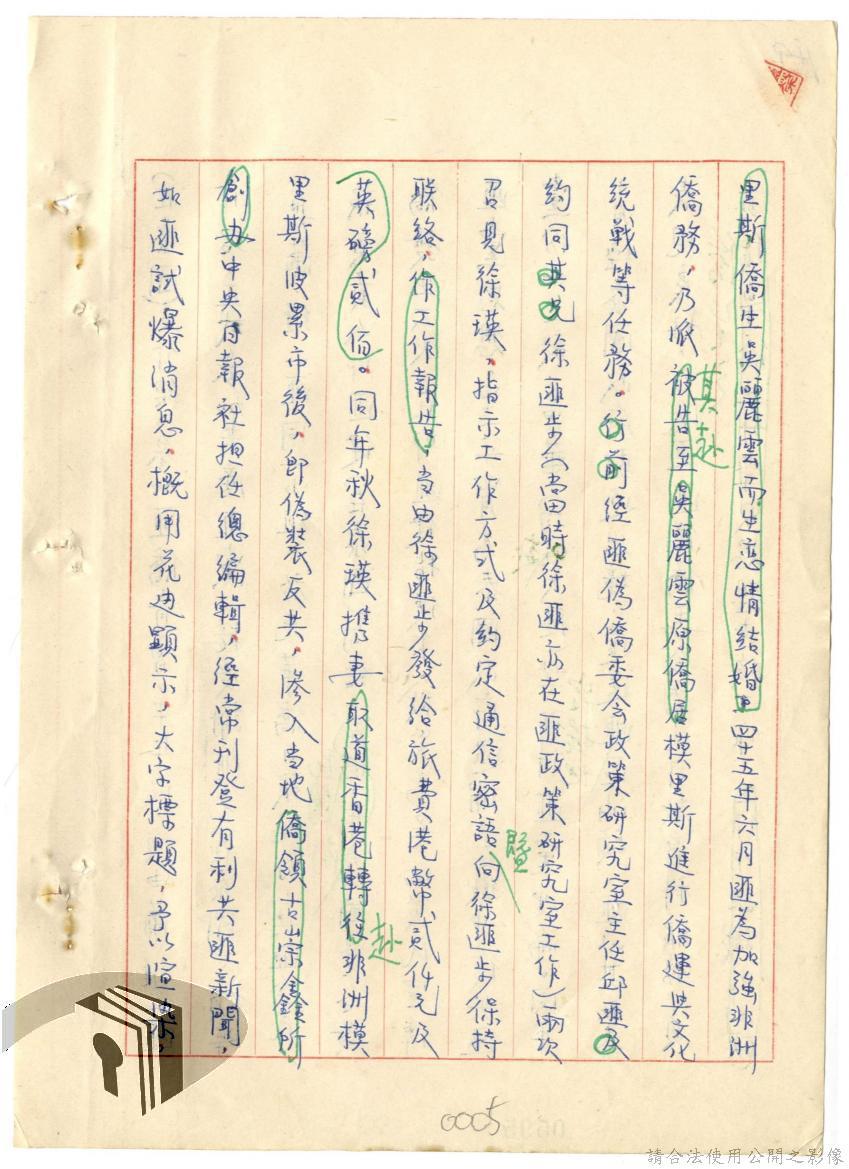 里斯僑生吳麗雲而生恋情結婚。四十五年六月匪為加強非洲
僑務，乃派被告至吳麗雲原僑居模里斯進行僑運與文化
其赴
統戰等任務。行前經匪偽僑委会政策研究室主任邱匪及
約同其兄徐匪步（當時徐匪亦在匪政策研究室工作）兩次
召見徐瑛，指示工作方式及約定通信密語向徐匪步保持
暨
联絡，作工作報告，当由徐匪步發给旅費港幣貳仟元及
英磅貳佰。同年秋徐瑛携妻取道香港轉往非洲模
赴
里斯波累市後，即偽裝反共，滲入当地僑領古宗鑫所
創办中央日報社担任總編輯，經常刊登有利共匪新聞，
如匪試爆消息，概用花边顯示，大字標題，予以渲染。
0005
請合法使用公開之影像